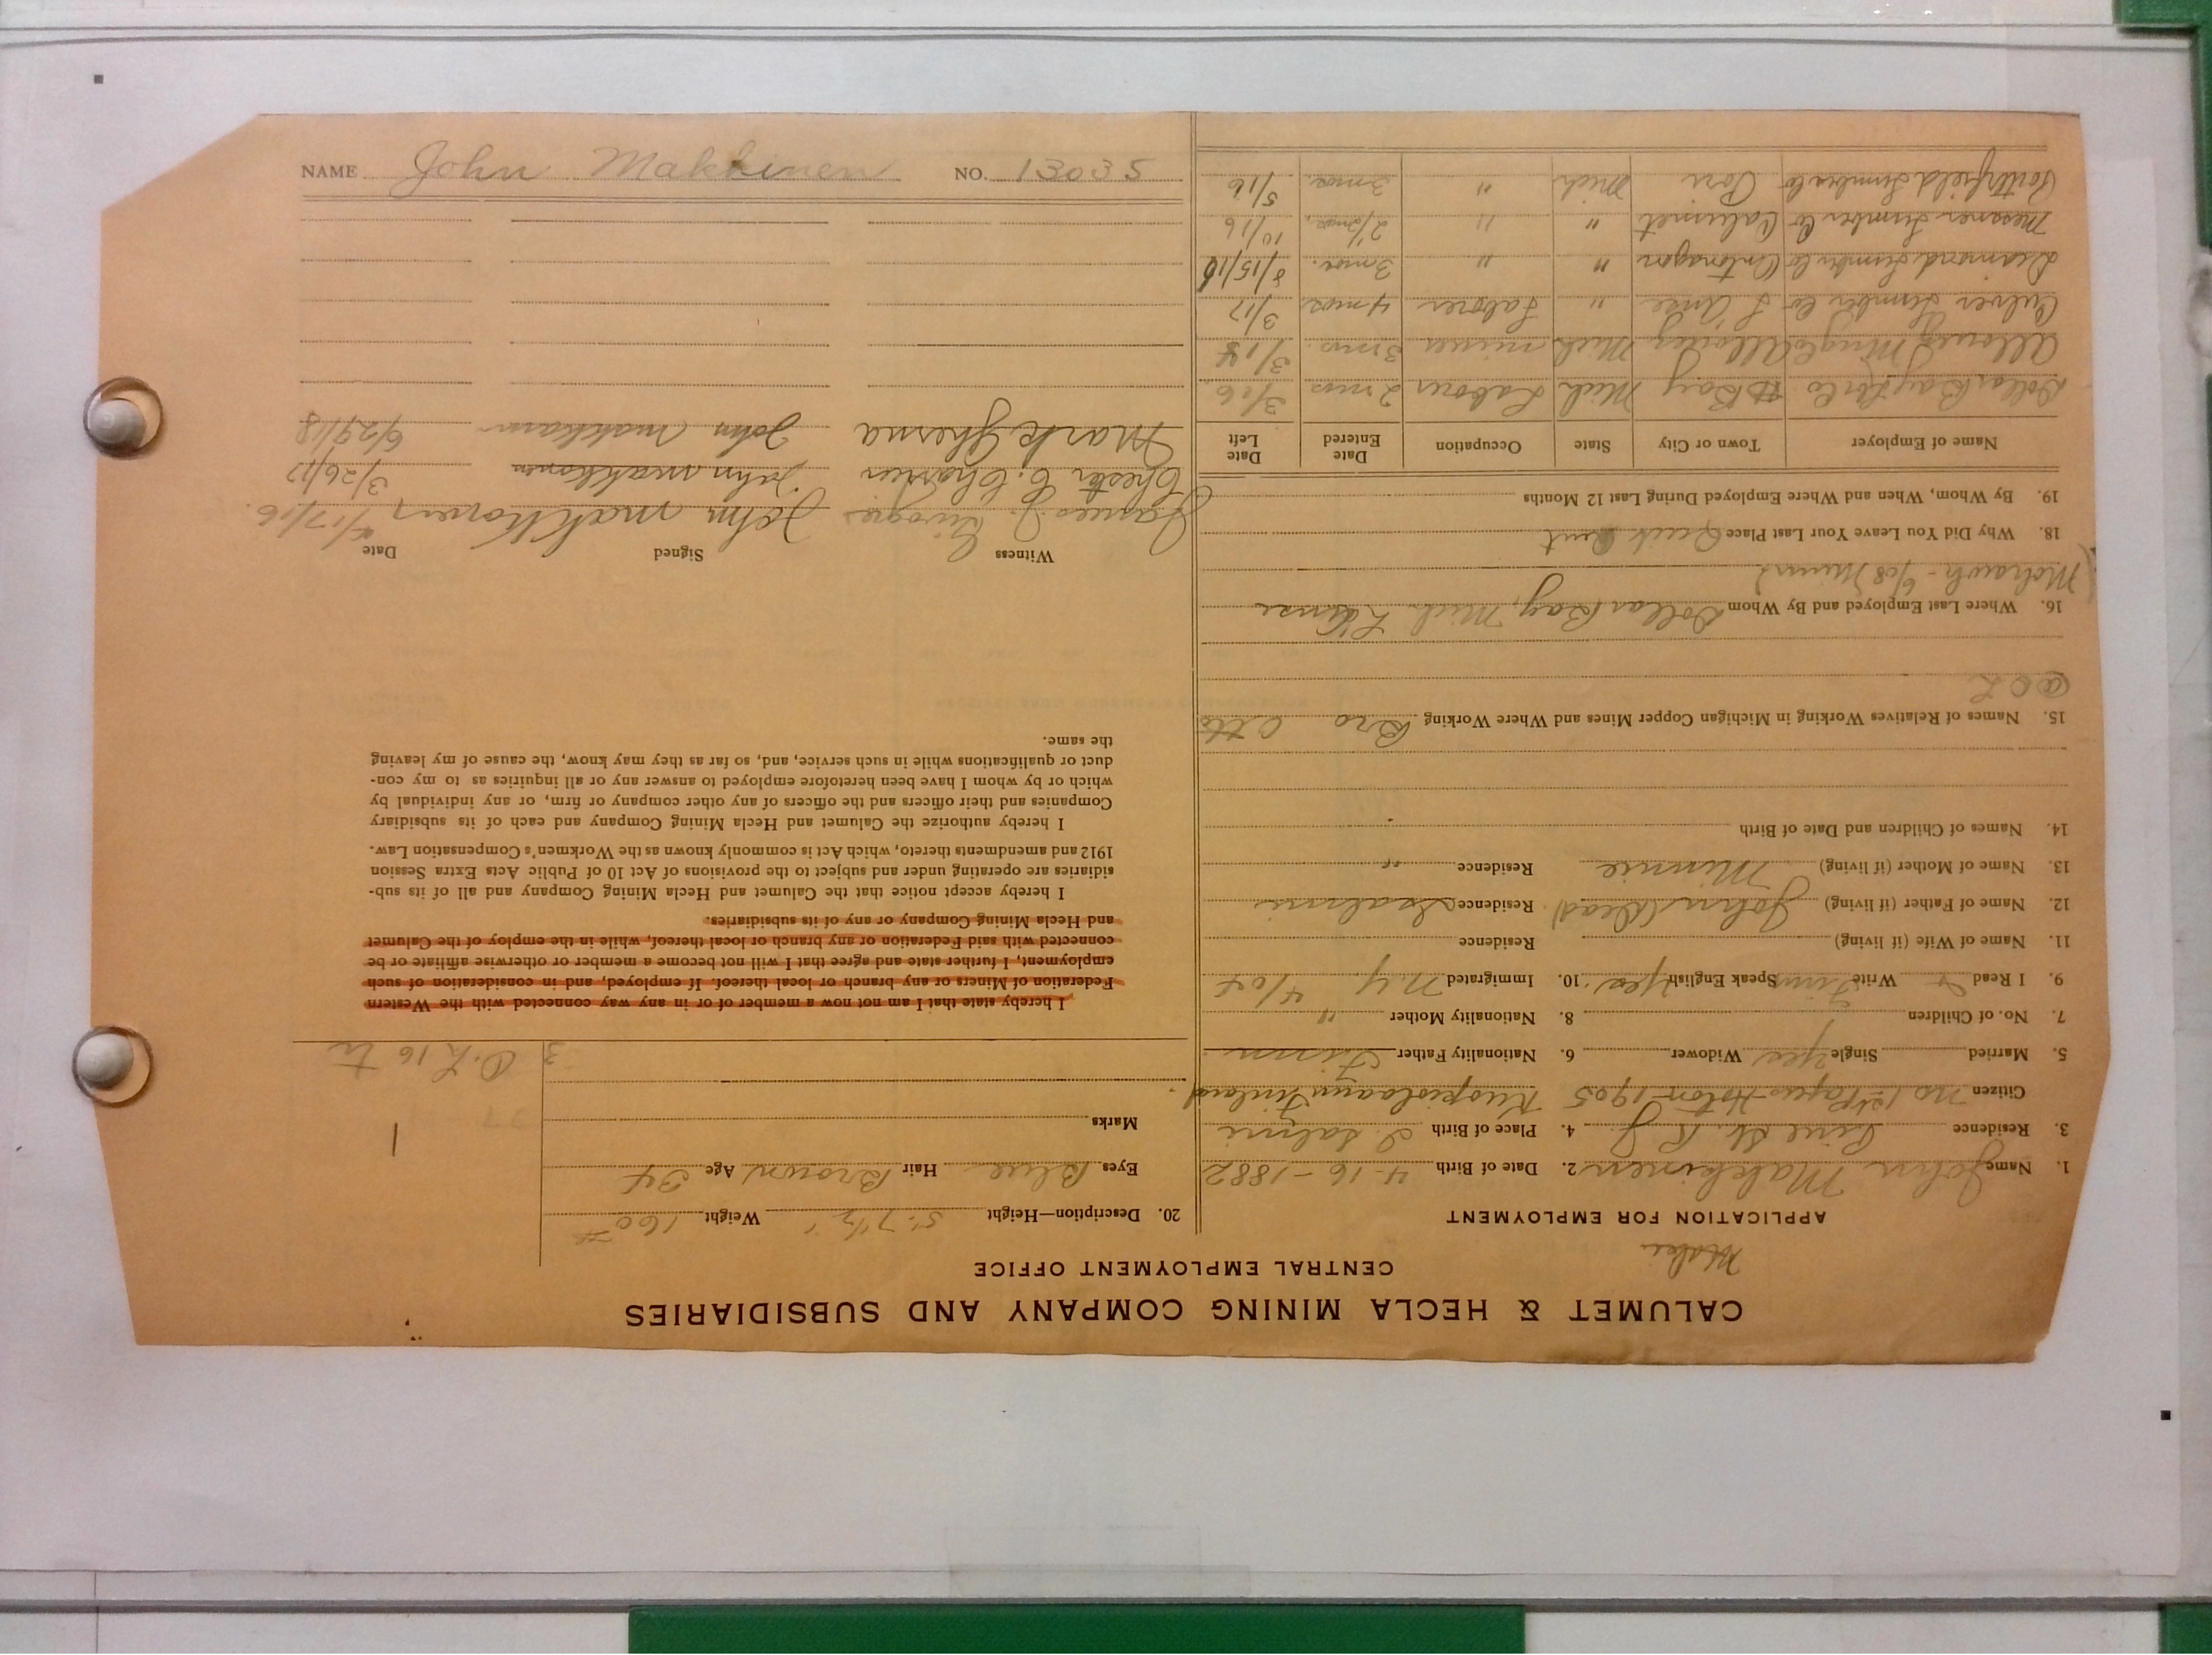 NAME John Makkinen NO. 13035
CALUMET & HECLA MINING COMPANY AND SUBSIDIARIES
CENTRAL EMPLOYMENT OFFICE
APPLICATION FOR EMPLOYMENT
1. Name John Makkinen 2. Date of Birth 4-16-1882
3. Residence Pine St. R. J. 4. Place of Birth I. Salmi
Citizen no 1st Paper Hoton-1905 Kuopiolaani Finland
5. Married Single yes Widower 6. Nationality Father Finn
7. No. of Children 8. Nationality Mother "
9. I Read & Write Finn Speak English yes 10. Immigrated N.Y. 4/04
11. Name of Wife (if living) Residence
12. Name of Father (if living) John (Dead) Residence Isalmi
13. Name of Mother (if living) Minnie Residence "
14. Names of Children and Date of Birth
15. Names of Relatives Working in Michigan Copper Mines and Where Working Bro Otto
@ O L
16. Where Last Employed and By Whom Dollar Bay, Mich. L'Anse
Mohawk - 6/08
18. Why Did You Leave Your Last Place Quit
19. By Whom, When and Where Employed During Last 12 Months
Name of Employer Town or City State Occupation Date Entered Date Left
Dollar Bay Co D Bay Mich Laborer 2 mos 3/06
Allouez Ming Co Allouez Mich miner 3 mos. 3/14
Culver Lumber Co L'Anse " Laborer 4 mos 3/17
Diamond Lumber Co Ontonagon " " 3 mos. 8/15/16
Messner Lumber Co Calumet " " 2 1/2 mos. 10/16
Lumber Co Mich " 3 mos. 5/16
20. Description—Height 5' 7 1/2" Weight 160 #
Eyes Blue Hair Brown Age 34
Marks
1
3 O. L 16 tr
I hereby state that I am not now a member of or in any way connected with the Western
Federation of Miners or any branch or local thereof. If employed, and in consideration of such
employment, I further state and agree that I will not become a member or otherwise affiliate or be
connected with said Federation or any branch or local thereof, while in the employ of the Calumet
and Hecla Mining Company or any of its subsidiaries.
I hereby accept notice that the Calumet and Hecla Mining Company and all of its sub-
sidiaries are operating under and subject to the provisions of Act 10 of Public Acts Extra Session
1912 and amendments thereto, which Act is commonly known as the Workmen's Compensation Law.
I hereby authorize the Calumet and Hecla Mining Company and each of its subsidiary
Companies and their officers and the officers of any other company or firm, or any individual by
which or by whom I have been heretofore employed to answer any or all inquiries as to my con-
duct or qualifications while in such service, and, so far as they may know, the cause of my leaving
the same.
Witness Signed Date
James J. John Makkonen 4/17/16.
Chester C. Charlier John Makkonen 3/26/17
Mark John Makkonen 6/29/18